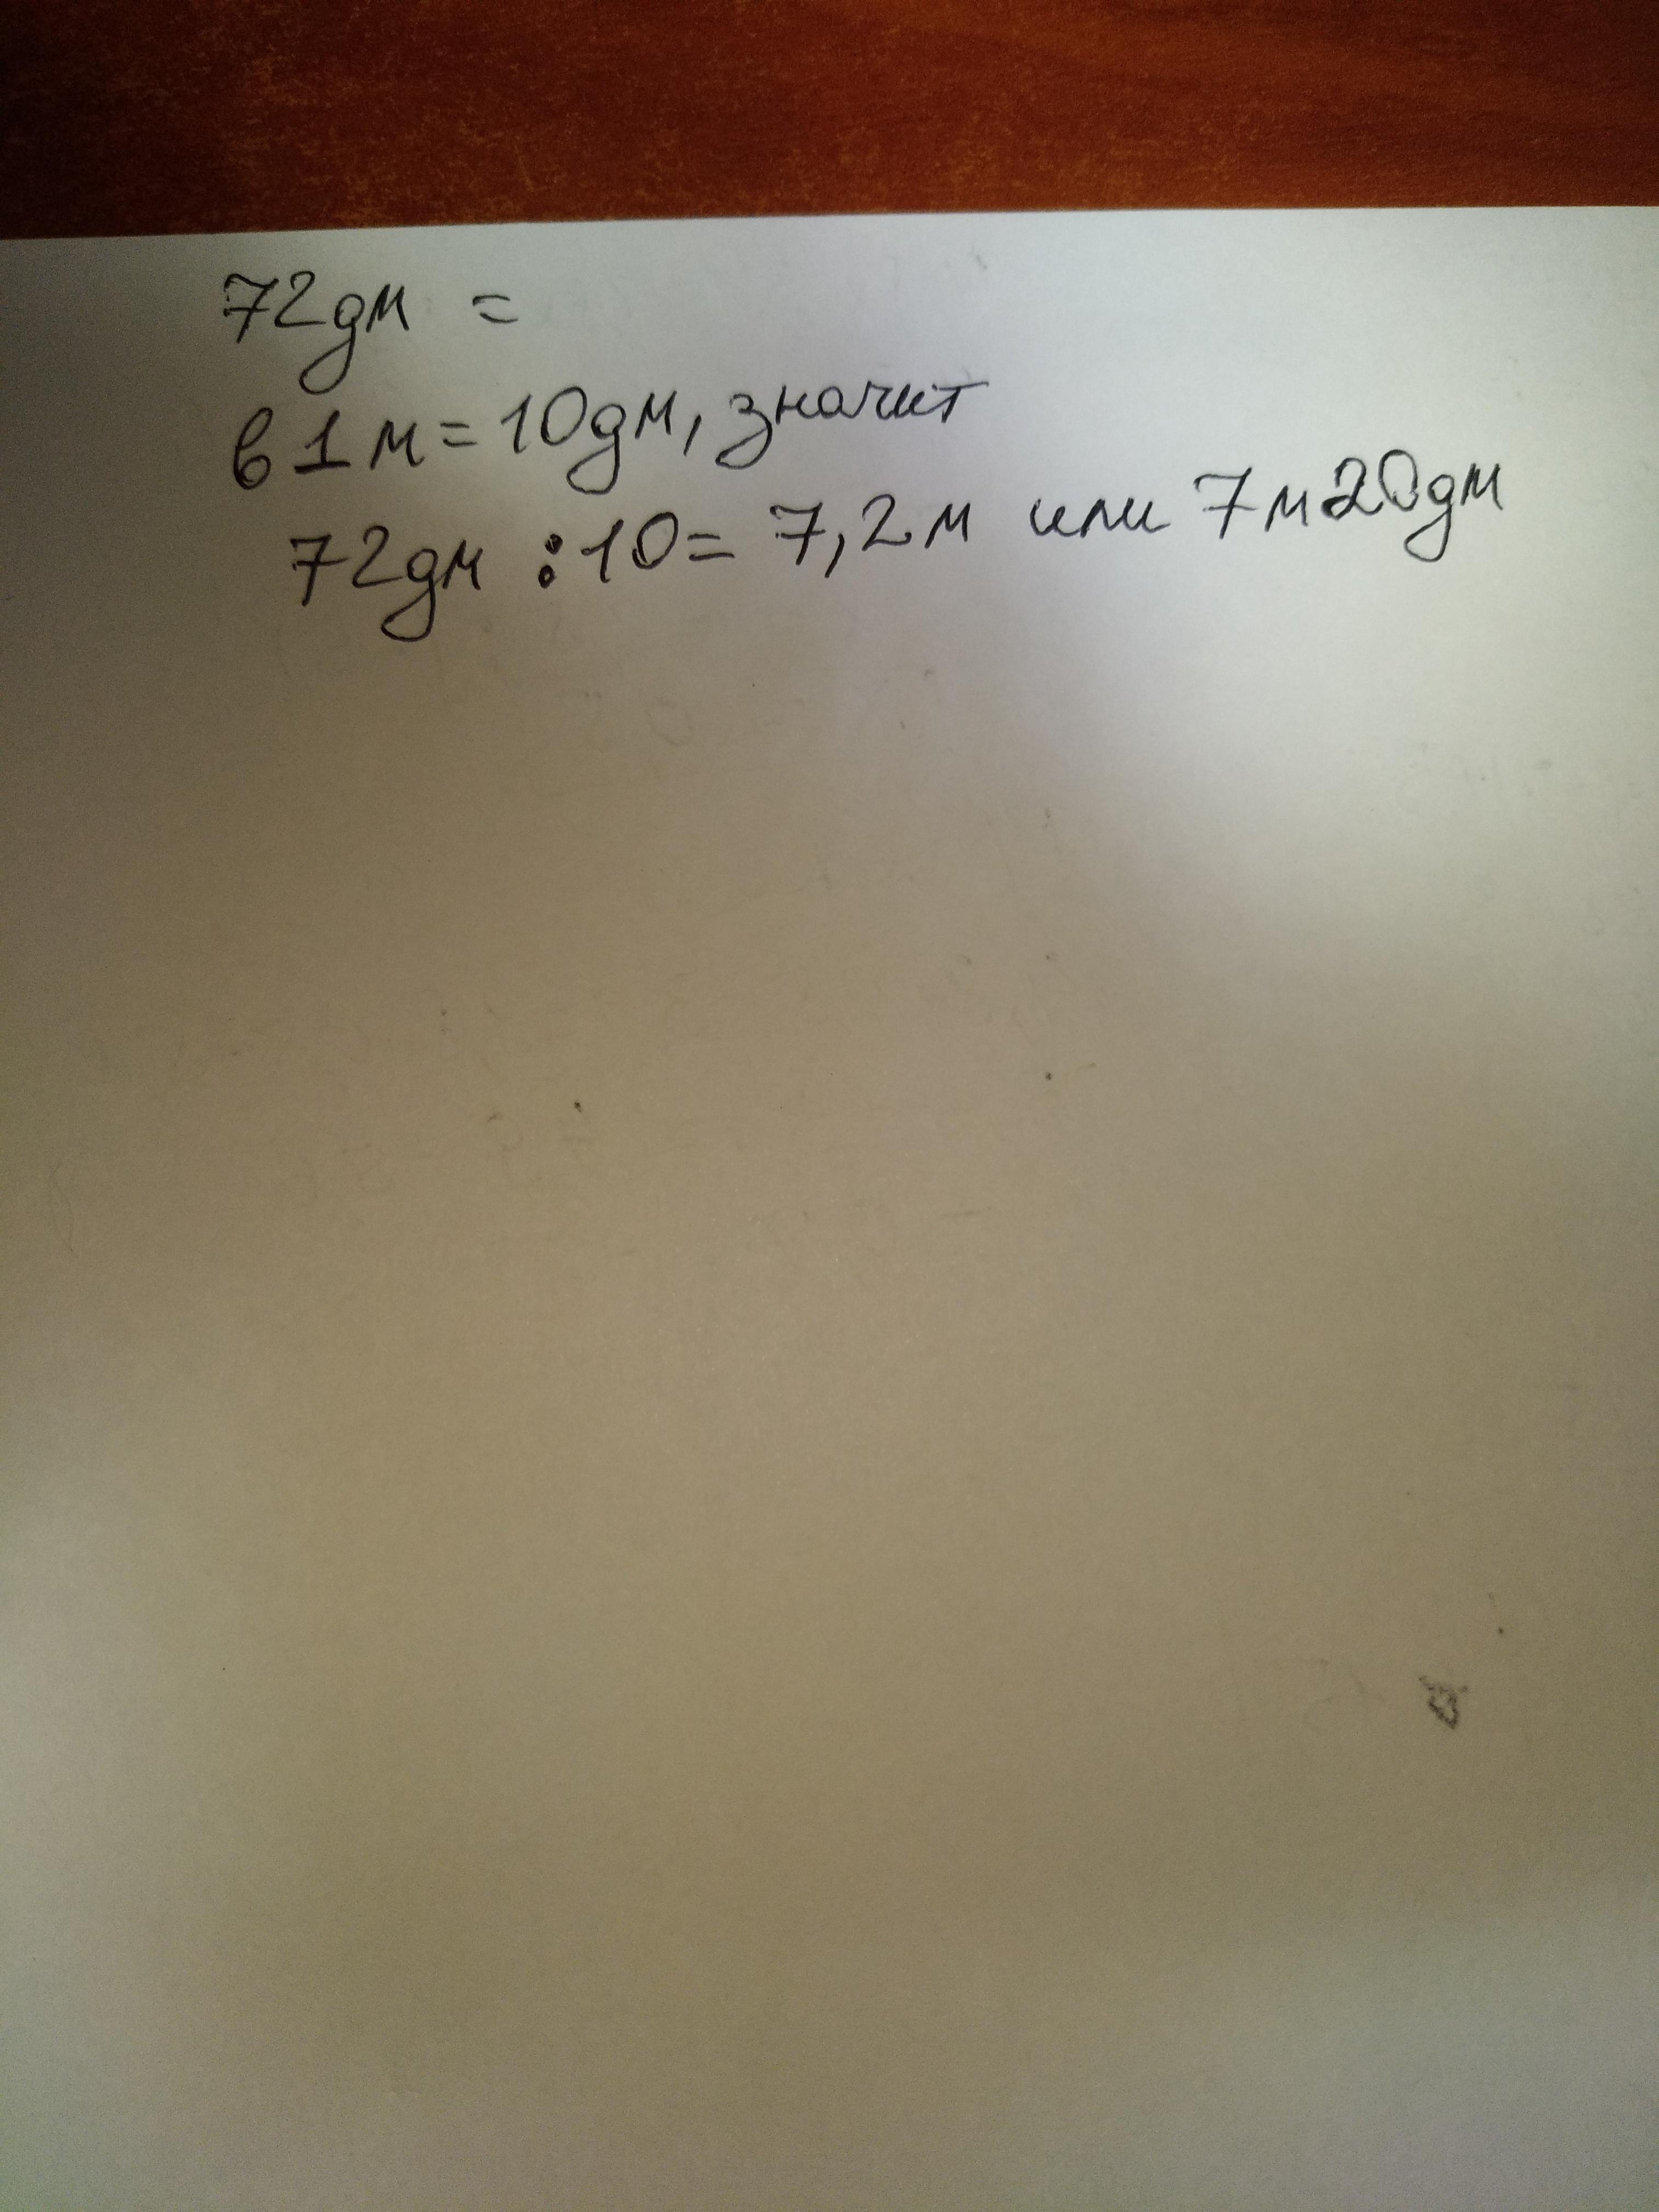 72дм =
в 1 м = 10дм, значит
72дм : 10 = 7,2 м или 7 м 20дм